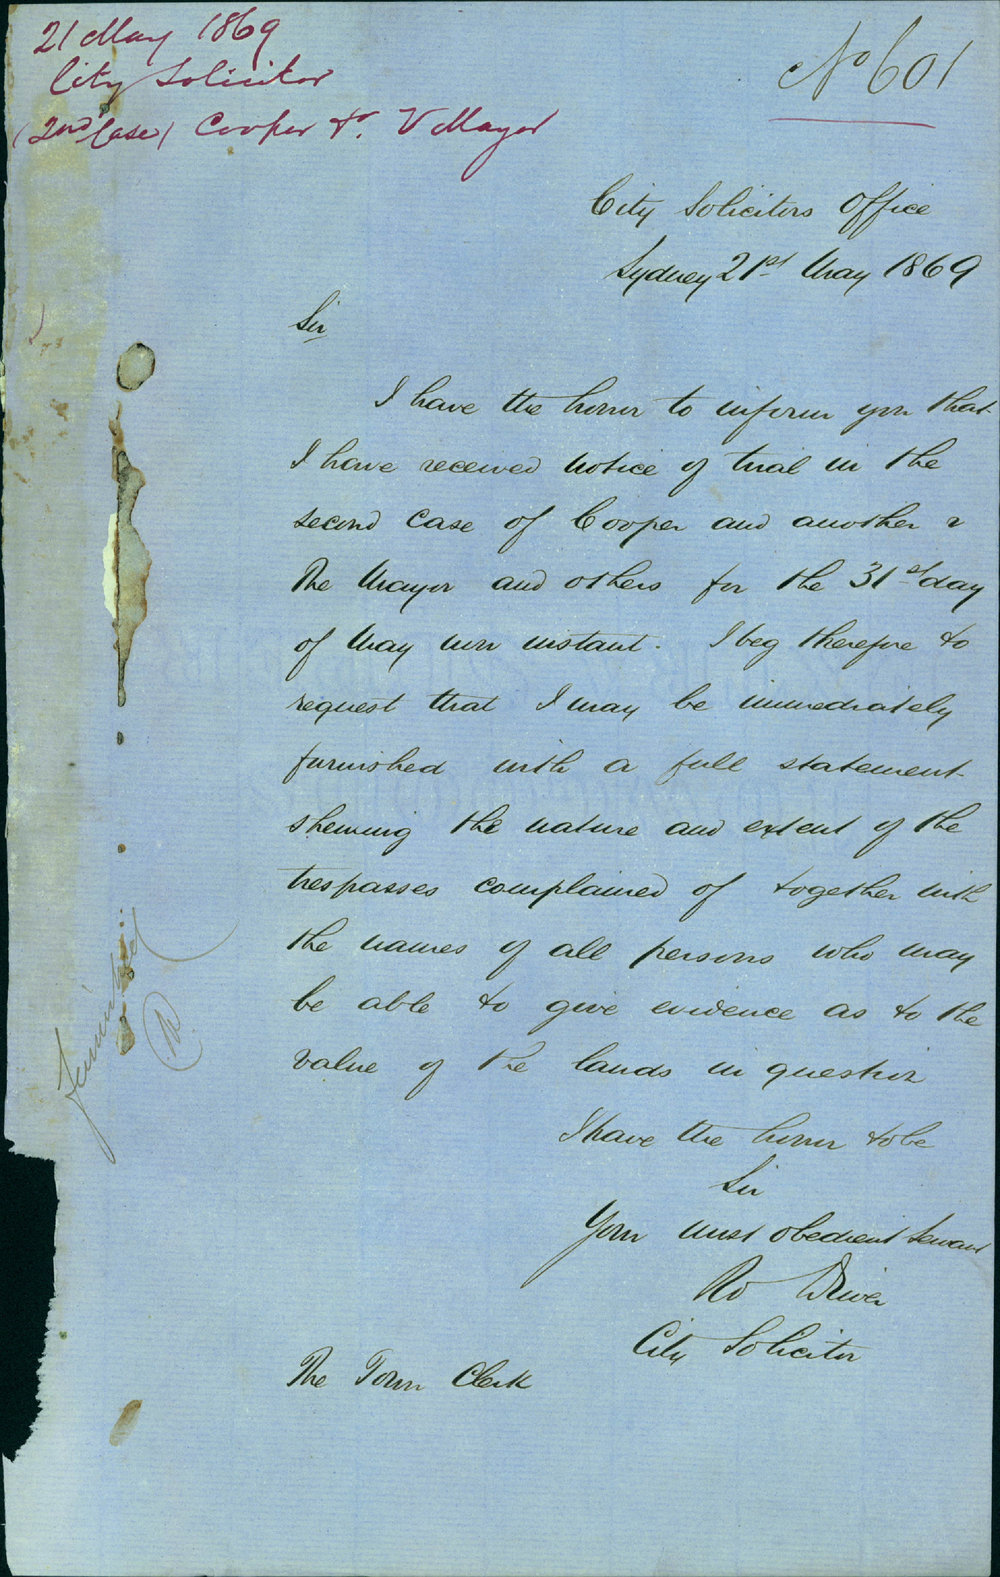 21 May 1869
City Solicitor
(2nd Case) Cooper & r. V Mayor
No 601
City Solicitors Office
Sydney 21st May 1869
Sir
I have the honor to inform you that
I have received notice of trial in the
second case of Cooper and another v
The Mayor and others for the 31st day
of May now instant. I beg therefore to
request that I may be immediately
furnished with a full statement
shewing the nature and extent of the
trespasses complained of together with
the names of all persons who may
be able to give evidence as to the
value of the lands in question
I have the honor to be
Sir
Your most obedient Servant
Rd Driver
City Solicitor
The Town Clerk